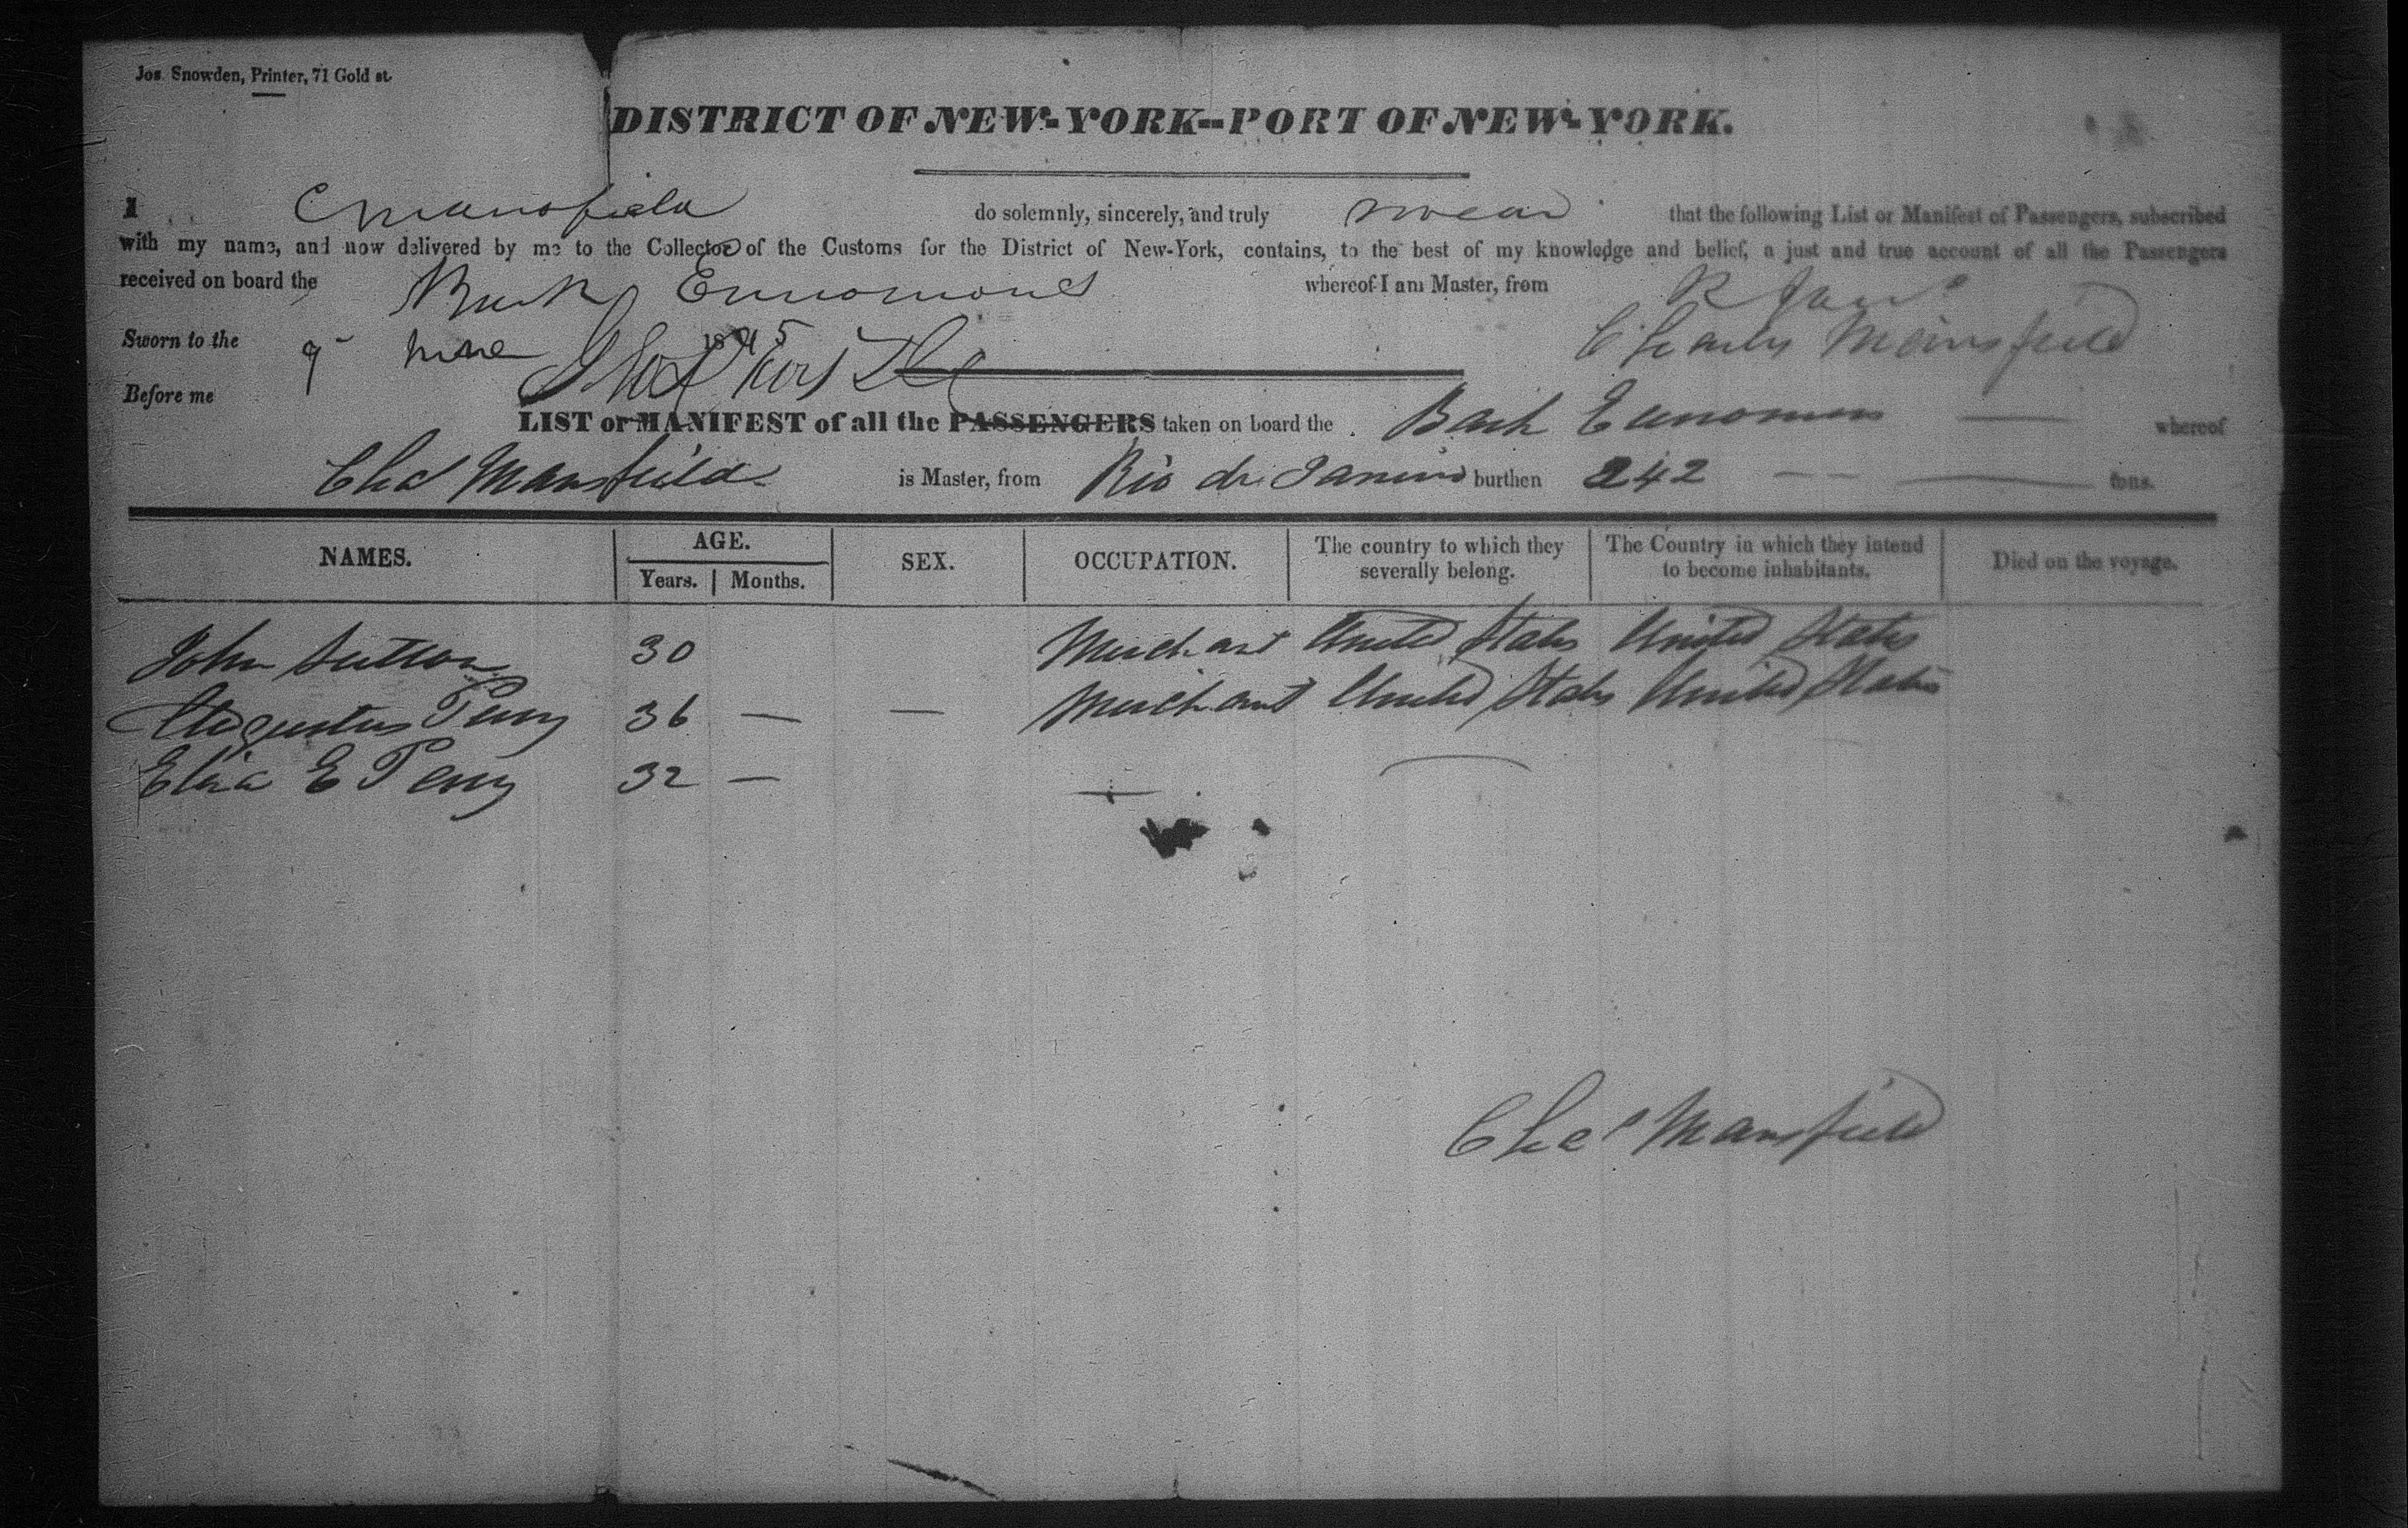 Jos. Snowden, Printer, 71 Gold st.
DISTRICT OF NEW-YORK--PORT OF NEW-YORK.
I C Mansfield do solemnly, sincerely, and truly swear that the following List or Manifest of Passengers, subscribed
with my name, and now delivered by me to the Collector of the Customs for the District of New-York, contains, to the best of my knowledge and belief, a just and true account of all the Passengers
received on board the Bark Eunomous whereof I am Master, from R Jano
Sworn to the 9 June 1845 Charles Mansfield
Before me
LIST or MANIFEST of all the PASSENGERS taken on board the Bark Eunomus whereof
Chas Mansfield is Master, from Rio de Janeiro burthen 242 tons.
NAMES. AGE. SEX. OCCUPATION. The country to which they severally belong. The Country in which they intend to become inhabitants. Died on the voyage.
Years. Months.
John Sutton 30 Merchant United States United States
Augustus Perry 36 — — Merchant United States United States
Eliza E Perry 32 — —
Chas Mansfield